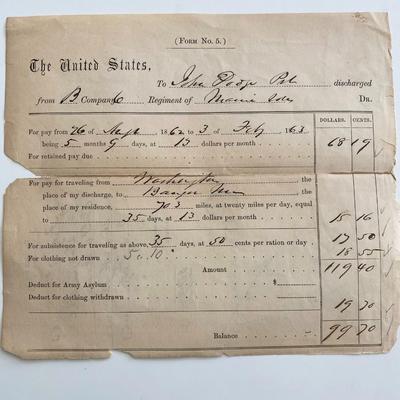 (FORM No. 5.)
The United States,
To John Dodge Pvt. discharged
from B Company 6 Regiment of Maine Vols DR.
DOLLARS. CENTS.
For pay from 26 of Sept 1862 to 3 of Feby 1863
being 5 months 9 days, at 13 dollars per month 68 19
For retained pay due
For pay for traveling from Washington the
place of my discharge, to Bangor Me the
place of my residence, 703 miles, at twenty miles per day, equal
to 35 days, at 13 dollars per month 15 16
For subsistence for traveling as above, 35 days, at 50 cents per ration or day 17 50
For clothing not drawn 18 55
Amount 119 40
Deduct for Army Asylum $
Deduct for clothing withdrawn 19 70
Balance 99 70